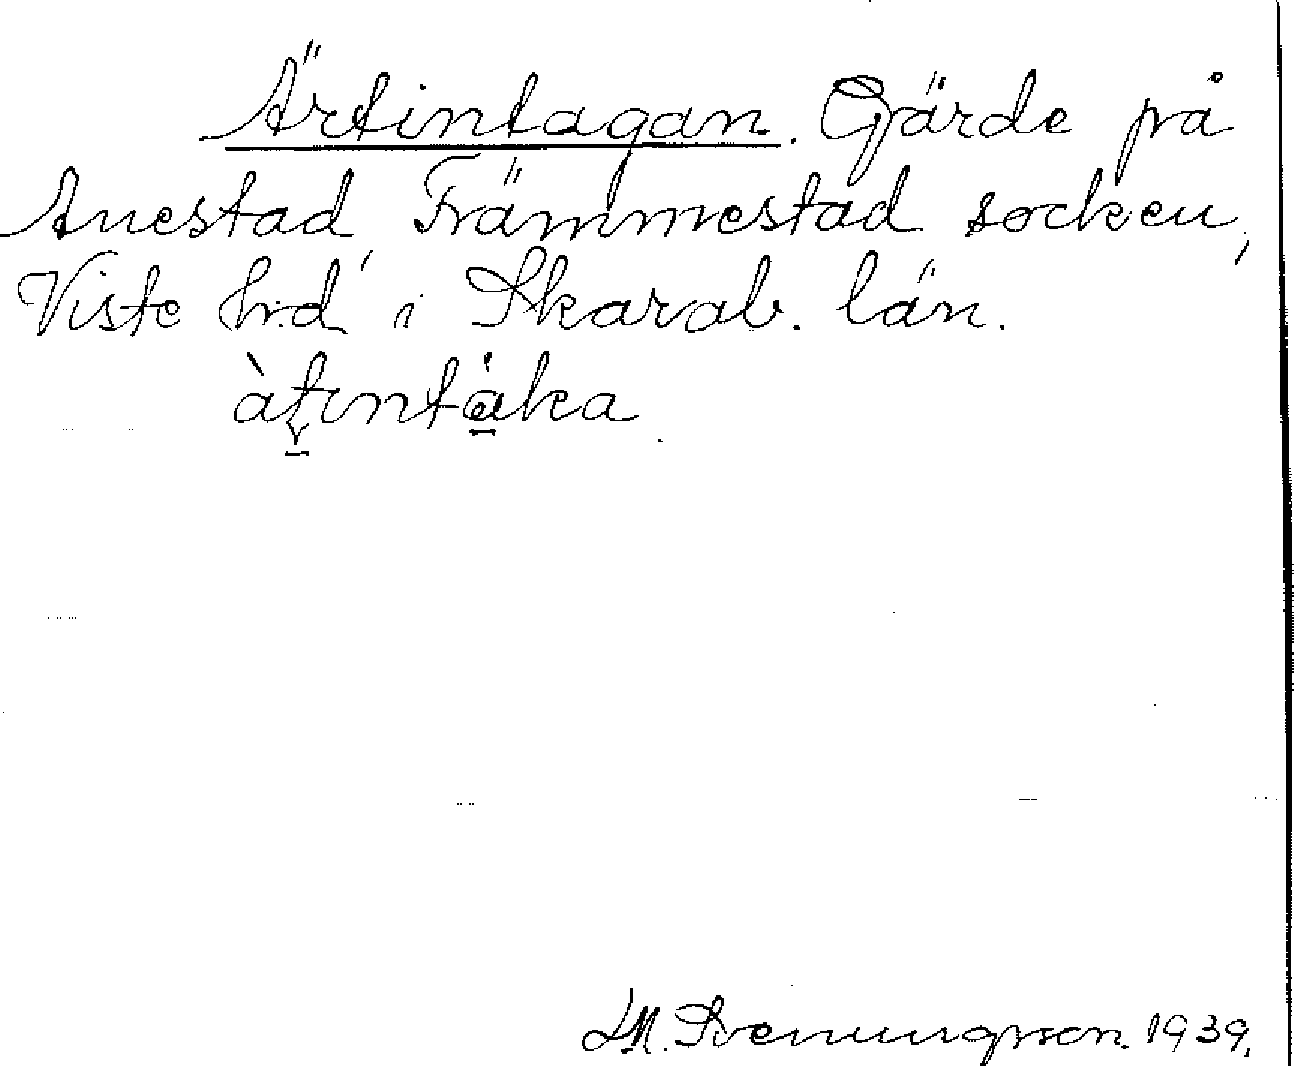 Ärtintagan. Gärde på
Anestad, Främmestad socken,
Viste hrd i Skarab. län.
àtintáka
LM. Svenungsson 1939.